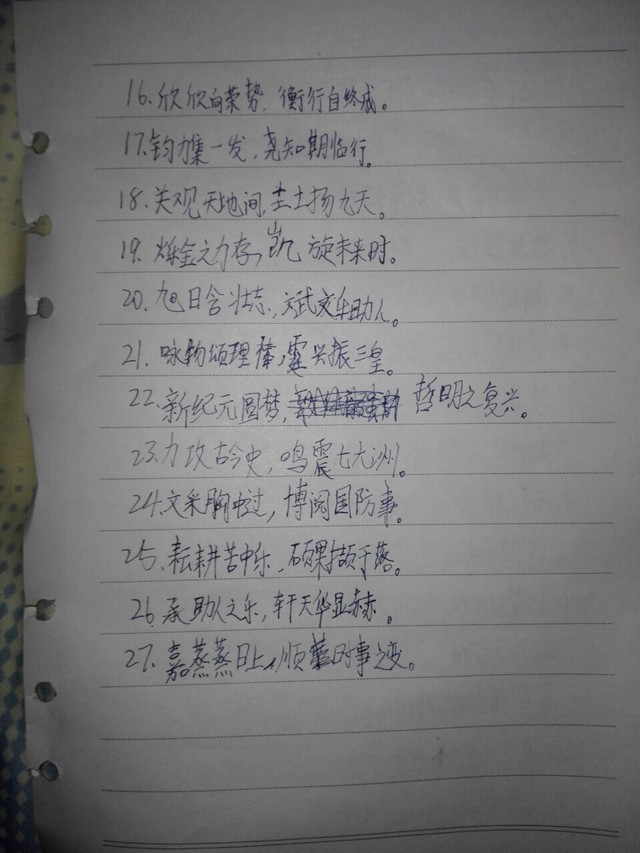 16.欣欣向荣势,衡行自终成。
17.钧力集一发,尧知期临行。
18.关观天地间,尘土扬九天。
19.烁金之力存,凯旋未来时。
20.旭日含壮志,斌文车助人。
21.咏物颂理棒,霆兴振三皇。
22.新纪元圆梦,哲明之复兴。
23.力攻古今史,鸣震七大洲。
24.文采胸中过,博阅国防事。
25.耘耕苦中乐,硕果撷于落。
26.承助人之乐,轩天华显赫。
27.嘉蒸蒸日上,顺时事之变。